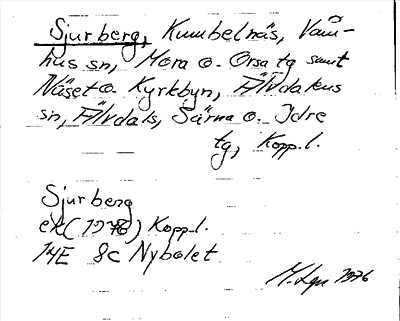 Sjurberg, Kumbelnäs, Våm-
hus sn, Mora o. Orsa tg samt
Näset o. Kyrkbyn, Älvdalens
sn, Älvdals, Särna o. Idre
tg, Kopp.l.
Sjurberg
ek (1976) Kopp.l.
14E 8c Nybolet
1976